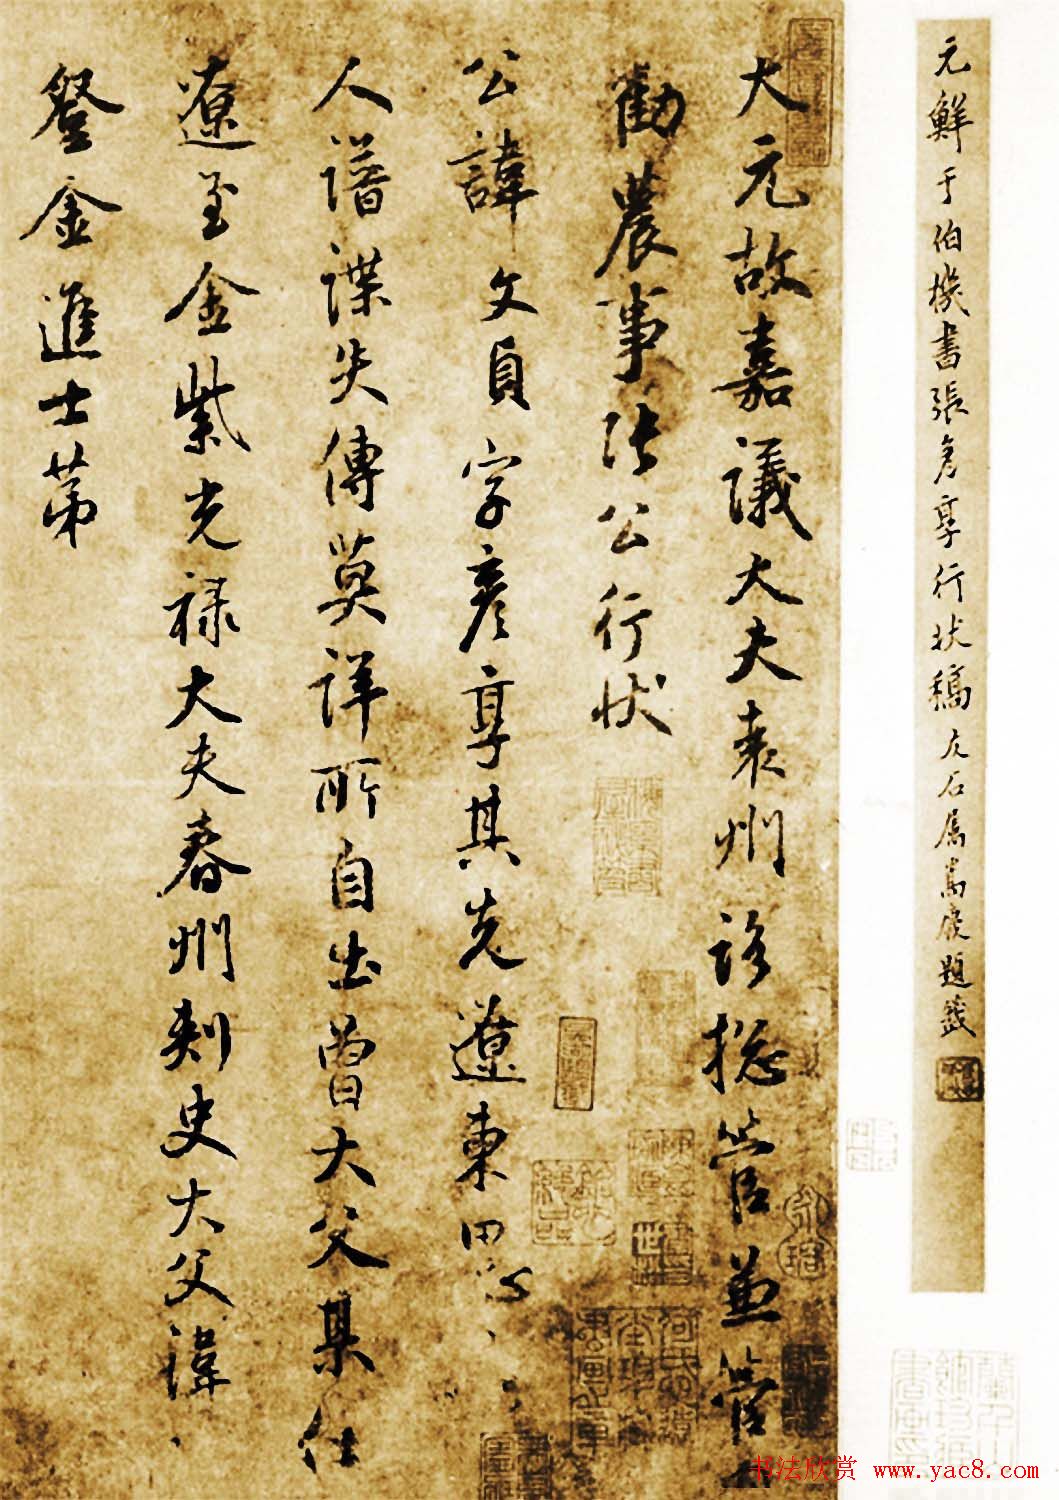 元鮮于伯機書張彥享行狀稿 左石屬嵩庼題籤
大元故嘉議大夫袁州路總管兼管
勸農事張公行狀
公諱文貞字彥享其先遼東
人譜諜失傳莫詳所自出曾大父某仕
遼至金紫光祿大夫春州刺史大父諱
登金進士第
书法欣赏 www.yac8.com